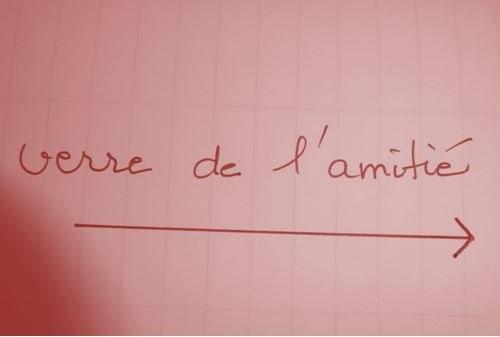 verre de l'amitié